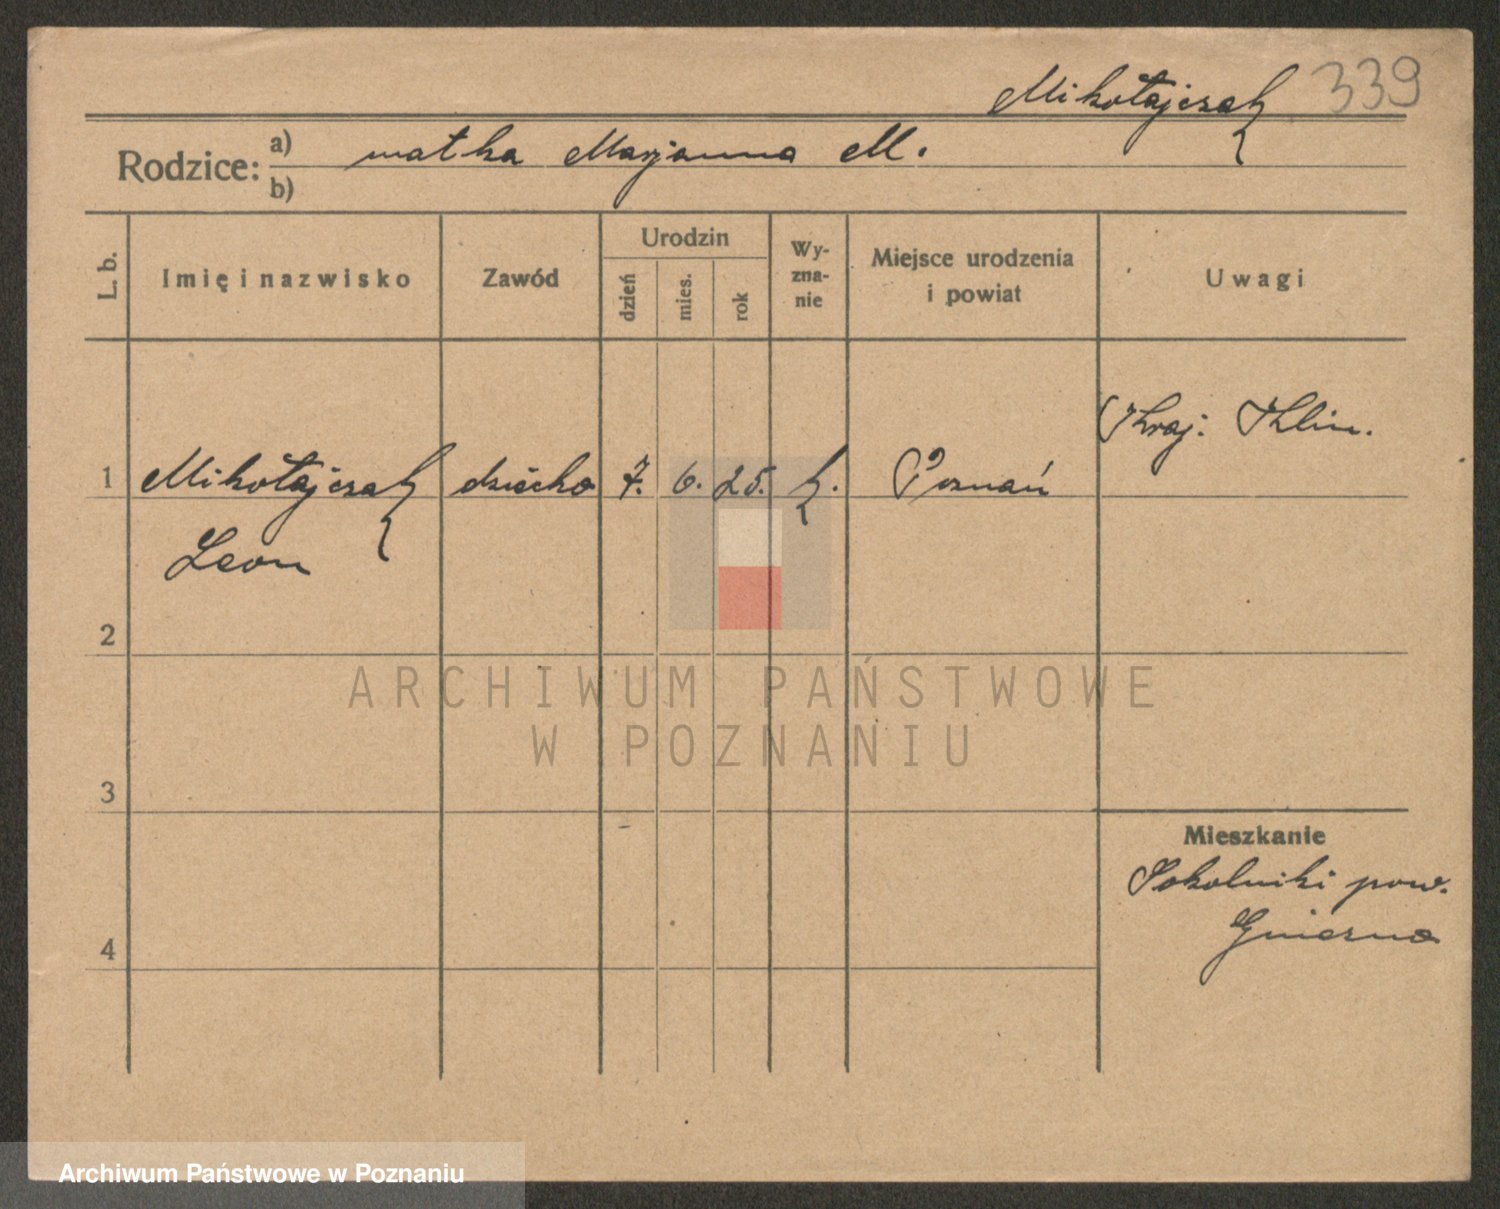 Mikołajczak 339
Rodzice: a) matka Marjanna M.
b)
L. b.
Imię i nazwisko
Zawód
Urodzin
dzień
mies.
rok
Wy-
zna-
nie
Miejsce urodzenia
i powiat
Uwagi
1 Mikołajczak dziecko 7. 6. 25. k. Poznań
Leon
2
3
4
Mieszkanie
Sokolniki pow.
Gniezno
ARCHIWUM PAŃSTWOWE
W POZNANIU
Archiwum Państwowe w Poznaniu